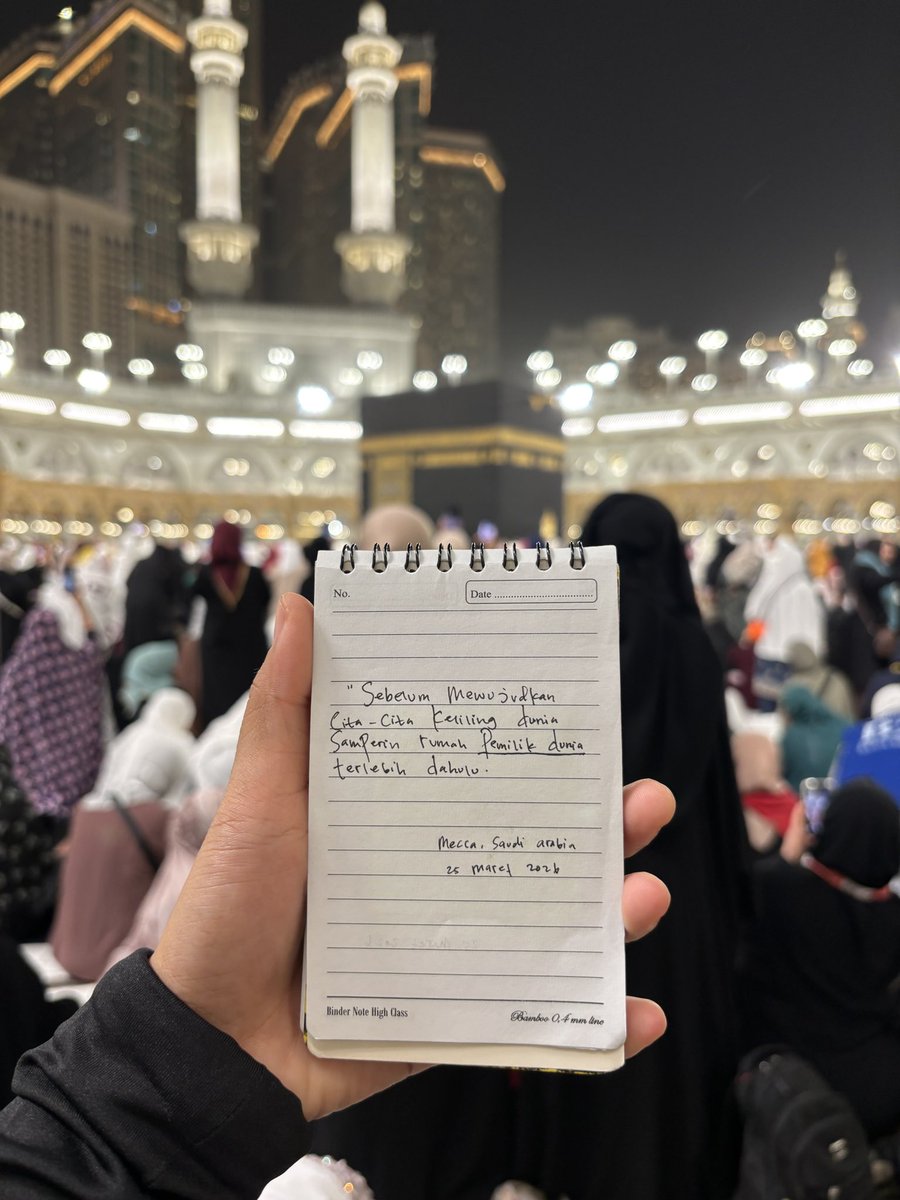 No.
Date
"Sebelum Mewujudkan
Cita-Cita keliling dunia
Samperin rumah Pemilik dunia
terlebih dahulu.
Mecca, Saudi arabia
25 maret 2026
Binder Note High Class
Bamboo 0,4 mm line